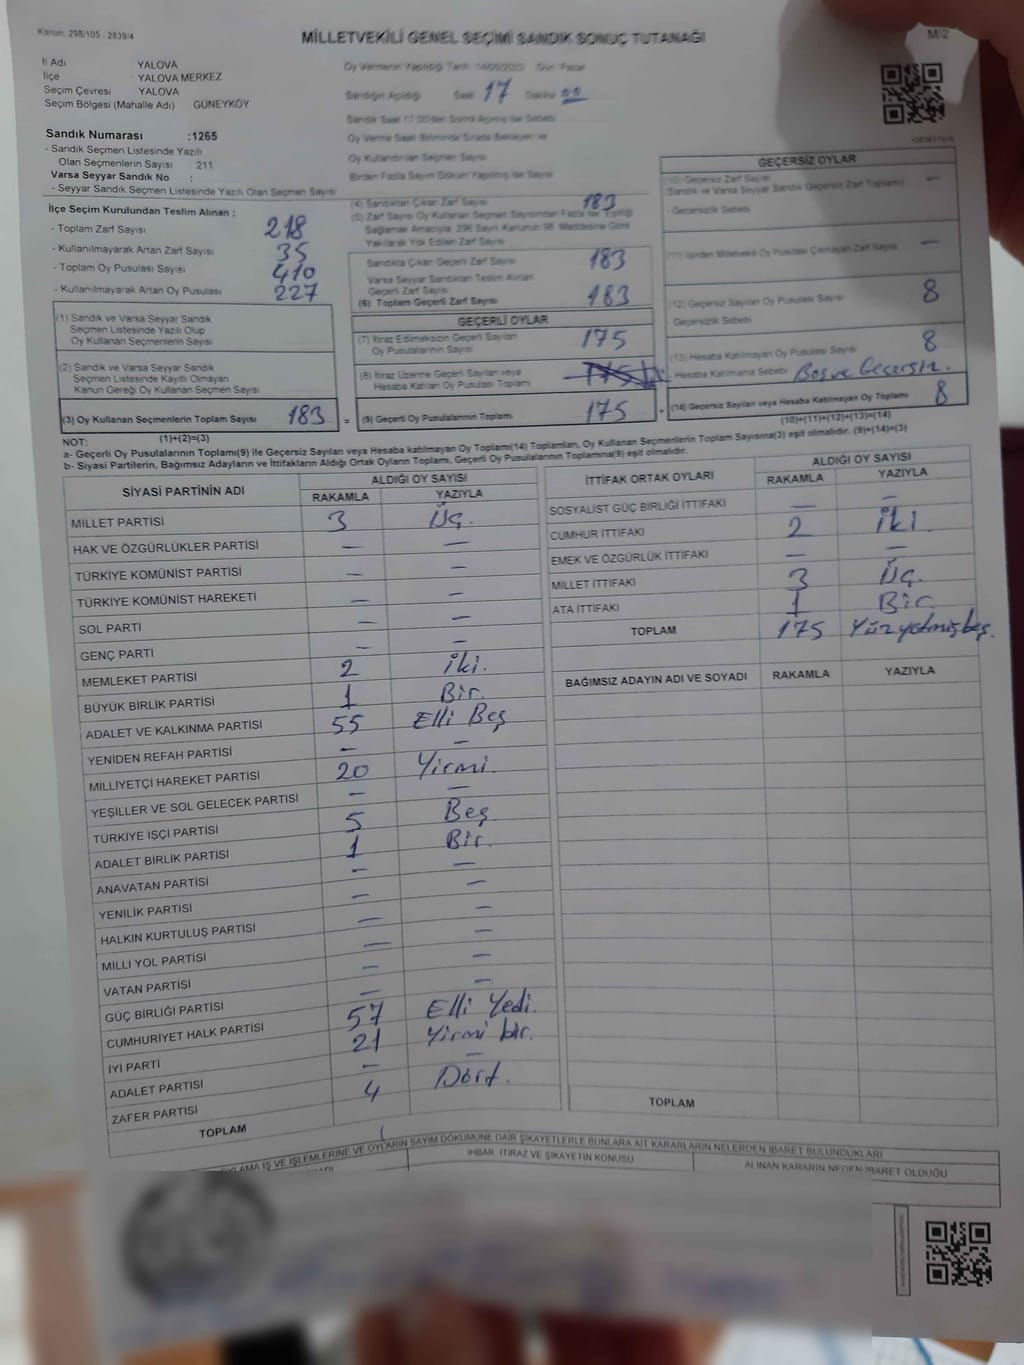 Kanun. 298/105 - 2839/4
MİLLETVEKİLİ GENEL SEÇİMİ SANDIK SONUÇ TUTANAĞI
M/2
İl Adı YALOVA
İlçe YALOVA MERKEZ
Seçim Çevresi YALOVA
Seçim Bölgesi (Mahalle Adı) GÜNEYKÖY
Sandık Numarası :1265
- Sandık Seçmen Listesinde Yazılı
Olan Seçmenlerin Sayısı 211
Varsa Seyyar Sandık No :
- Seyyar Sandık Seçmen Listesinde Yazılı Olan Seçmen Sayısı
Oy Vermenin Yapıldığı Tarih 14/05/2023 Gün Pazar
Sandığın Açıldığı Saat 17
Oy Kullandırılan Seçmen Sayısı
Birden Fazla Sayım Döküm Yapılmış ise Sebebi
İlçe Seçim Kurulundan Teslim Alınan :
- Toplam Zarf Sayısı 218
- Kullanılmayarak Artan Zarf Sayısı 35
- Toplam Oy Pusulası Sayısı 410
- Kullanılmayarak Artan Oy Pusulası 227
(1) Sandık ve Varsa Seyyar Sandık
Seçmen Listesinde Yazılı Olup
Oy Kullanan Seçmenlerin Sayısı
(2) Sandık ve Varsa Seyyar Sandık
Seçmen Listesinde Kayıtlı Olmayan
Kanun Gereği Oy Kullanan Seçmen Sayısı
(3) Oy Kullanan Seçmenlerin Toplam Sayısı 183 =
(1)+(2)=(3)
(4) Sandıktan Çıkan Zarf Sayısı 183
(5) Zarf Sayısı Oy Kullanan Seçmen Sayısından Fazla ise, Eşitliği
Sağlamak Amacıyla, 298 Sayılı Kanunun 98. Maddesine Göre
Yakılarak Yok Edilen Zarf Sayısı
Sandıkta Çıkan Geçerli Zarf Sayısı 183
Varsa Seyyar Sandıktan Teslim Alınan
Geçerli Zarf Sayısı
(6) Toplam Geçerli Zarf Sayısı 183
GEÇERLİ OYLAR
(7) İtiraz Edilmeksizin Geçerli Sayılan
Oy Pusulalarının Sayısı 175
(8) İtiraz Üzerine Geçerli Sayılan veya
Hesaba Katılan Oy Pusulası Toplamı
(9) Geçerli Oy Pusulalarının Toplamı 175
GEÇERSİZ OYLAR
(10) Geçersiz Zarf Sayısı —
(Sandık ve Varsa Seyyar Sandık Geçersiz Zarf Toplamı)
- Geçersizlik Sebebi
(11) İçinden Milletvekili Oy Pusulası Çıkmayan Zarf Sayısı —
(12) Geçersiz Sayılan Oy Pusulası Sayısı 8
- Geçersizlik Sebebi
(13) Hesaba Katılmayan Oy Pusulası Sayısı 8
- Hesaba Katılmama Sebebi Boş ve Geçersiz.
(14) Geçersiz Sayılan veya Hesaba Katılmayan Oy Toplamı 8
(10)+(11)+(12)+(13)=(14)
NOT:
a- Geçerli Oy Pusulalarının Toplamı(9) ile Geçersiz Sayılan veya Hesaba katılmayan Oy Toplamı(14) Toplamları, Oy Kullanan Seçmenlerin Toplam Sayısına(3) eşit olmalıdır. (9)+(14)=(3)
b- Siyasi Partilerin, Bağımsız Adayların ve İttifakların Aldığı Ortak Oyların Toplamı, Geçerli Oy Pusulalarının Toplamına(9) eşit olmalıdır.
SİYASİ PARTİNİN ADI ALDIĞI OY SAYISI
RAKAMLA YAZIYLA
MİLLET PARTİSİ 3 Üç.
HAK VE ÖZGÜRLÜKLER PARTİSİ — —
TÜRKİYE KOMÜNİST PARTİSİ — —
TÜRKİYE KOMÜNİST HAREKETİ — —
SOL PARTİ — —
GENÇ PARTİ — —
MEMLEKET PARTİSİ 2 İki.
BÜYÜK BİRLİK PARTİSİ 1 Bir.
ADALET VE KALKINMA PARTİSİ 55 Elli Beş
YENİDEN REFAH PARTİSİ — —
MİLLİYETÇİ HAREKET PARTİSİ 20 Yirmi.
YEŞİLLER VE SOL GELECEK PARTİSİ — —
TÜRKİYE İŞÇİ PARTİSİ 5 Beş
ADALET BİRLİK PARTİSİ 1 Bir.
ANAVATAN PARTİSİ — —
YENİLİK PARTİSİ — —
HALKIN KURTULUŞ PARTİSİ — —
MİLLİ YOL PARTİSİ — —
VATAN PARTİSİ — —
GÜÇ BİRLİĞİ PARTİSİ — —
CUMHURİYET HALK PARTİSİ 57 Elli Yedi.
İYİ PARTİ 21 Yirmi bir.
ADALET PARTİSİ — —
ZAFER PARTİSİ 4 Dört.
TOPLAM
İTTİFAK ORTAK OYLARI ALDIĞI OY SAYISI
RAKAMLA YAZIYLA
SOSYALİST GÜÇ BİRLİĞİ İTTİFAKI — —
CUMHUR İTTİFAKI 2 İki.
EMEK VE ÖZGÜRLÜK İTTİFAKI — —
MİLLET İTTİFAKI 3 Üç.
ATA İTTİFAKI 1 Bir
TOPLAM 175 Yüz yetmiş beş.
BAĞIMSIZ ADAYIN ADI VE SOYADI RAKAMLA YAZIYLA
TOPLAM
İŞ VE İŞLEMLERİNE VE OYLARIN SAYIM DÖKÜMÜNE DAİR ŞİKAYETLERLE BUNLARA AİT KARARLARIN NELERDEN İBARET BULUNDUKLARI
İHBAR, İTİRAZ VE ŞİKAYETİN KONUSU
ALINAN KARARIN NEDEN İBARET OLDUĞU